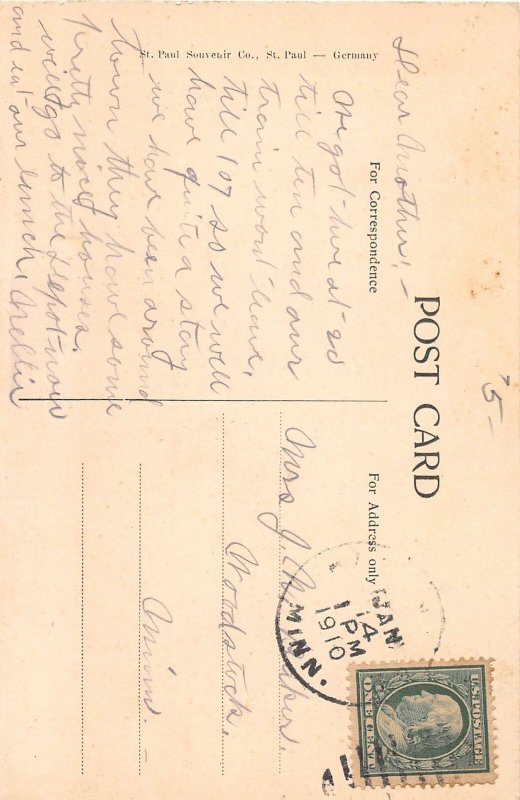 POST CARD
For Correspondence
For Address only
St. Paul Souvenir Co., St. Paul — Germany
Dear Mother:—
We got here at 20
till ten and our
train wont leave,
till 107 so we will
have quite a stay
we have been around
town they have some
pretty nice houses.
will go to the depot now
and eat our lunch, Nellie
Mrs J.
Woodstock,
Minn.
JAN
14
1 PM
1910
MINN.
U.S. POSTAGE
ONE CENT
5-